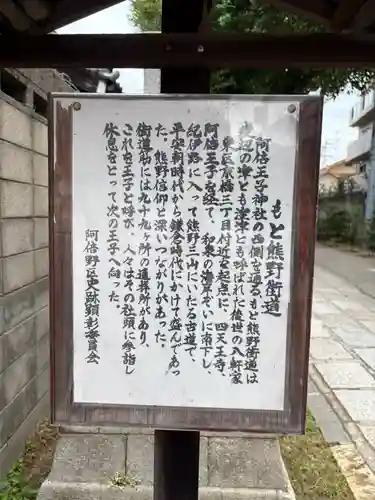 もと熊野街道
阿倍王子神社の西側を通るもと熊野街道は
渡辺の津とも窪津とも呼ばれた後世の八軒家
東区京橋三丁目付近を起点に、四天王寺、
阿倍王子を経て、和泉の海岸ぞいに南下し、
紀伊路に入って熊野三山にいたる古道で、
平安朝時代から鎌倉時代にかけて盛んであっ
た。熊野信仰と深いつながりがあった。
街道筋には九十九ヶ所の遥拝所があり、
これを王子と呼び、人々はその社頭に参詣し
休息をとって次の王子へ向った。
阿倍野区史跡顕彰委員会